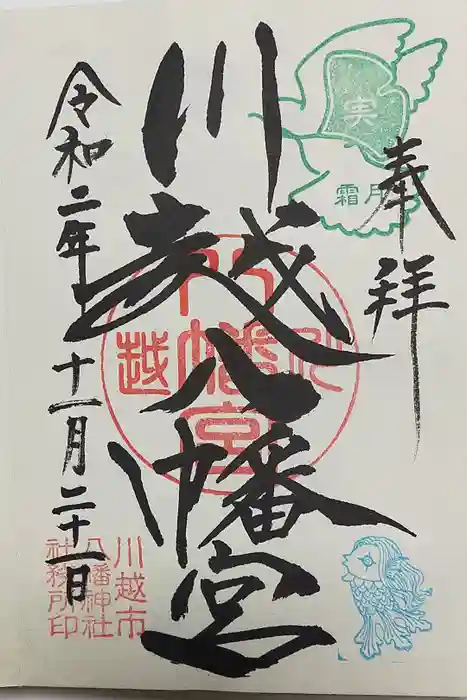 奉拝
実
霜月
川越八幡宮
川越八幡宮
令和二年十一月二十一日
川越市
八幡神社
社務所印